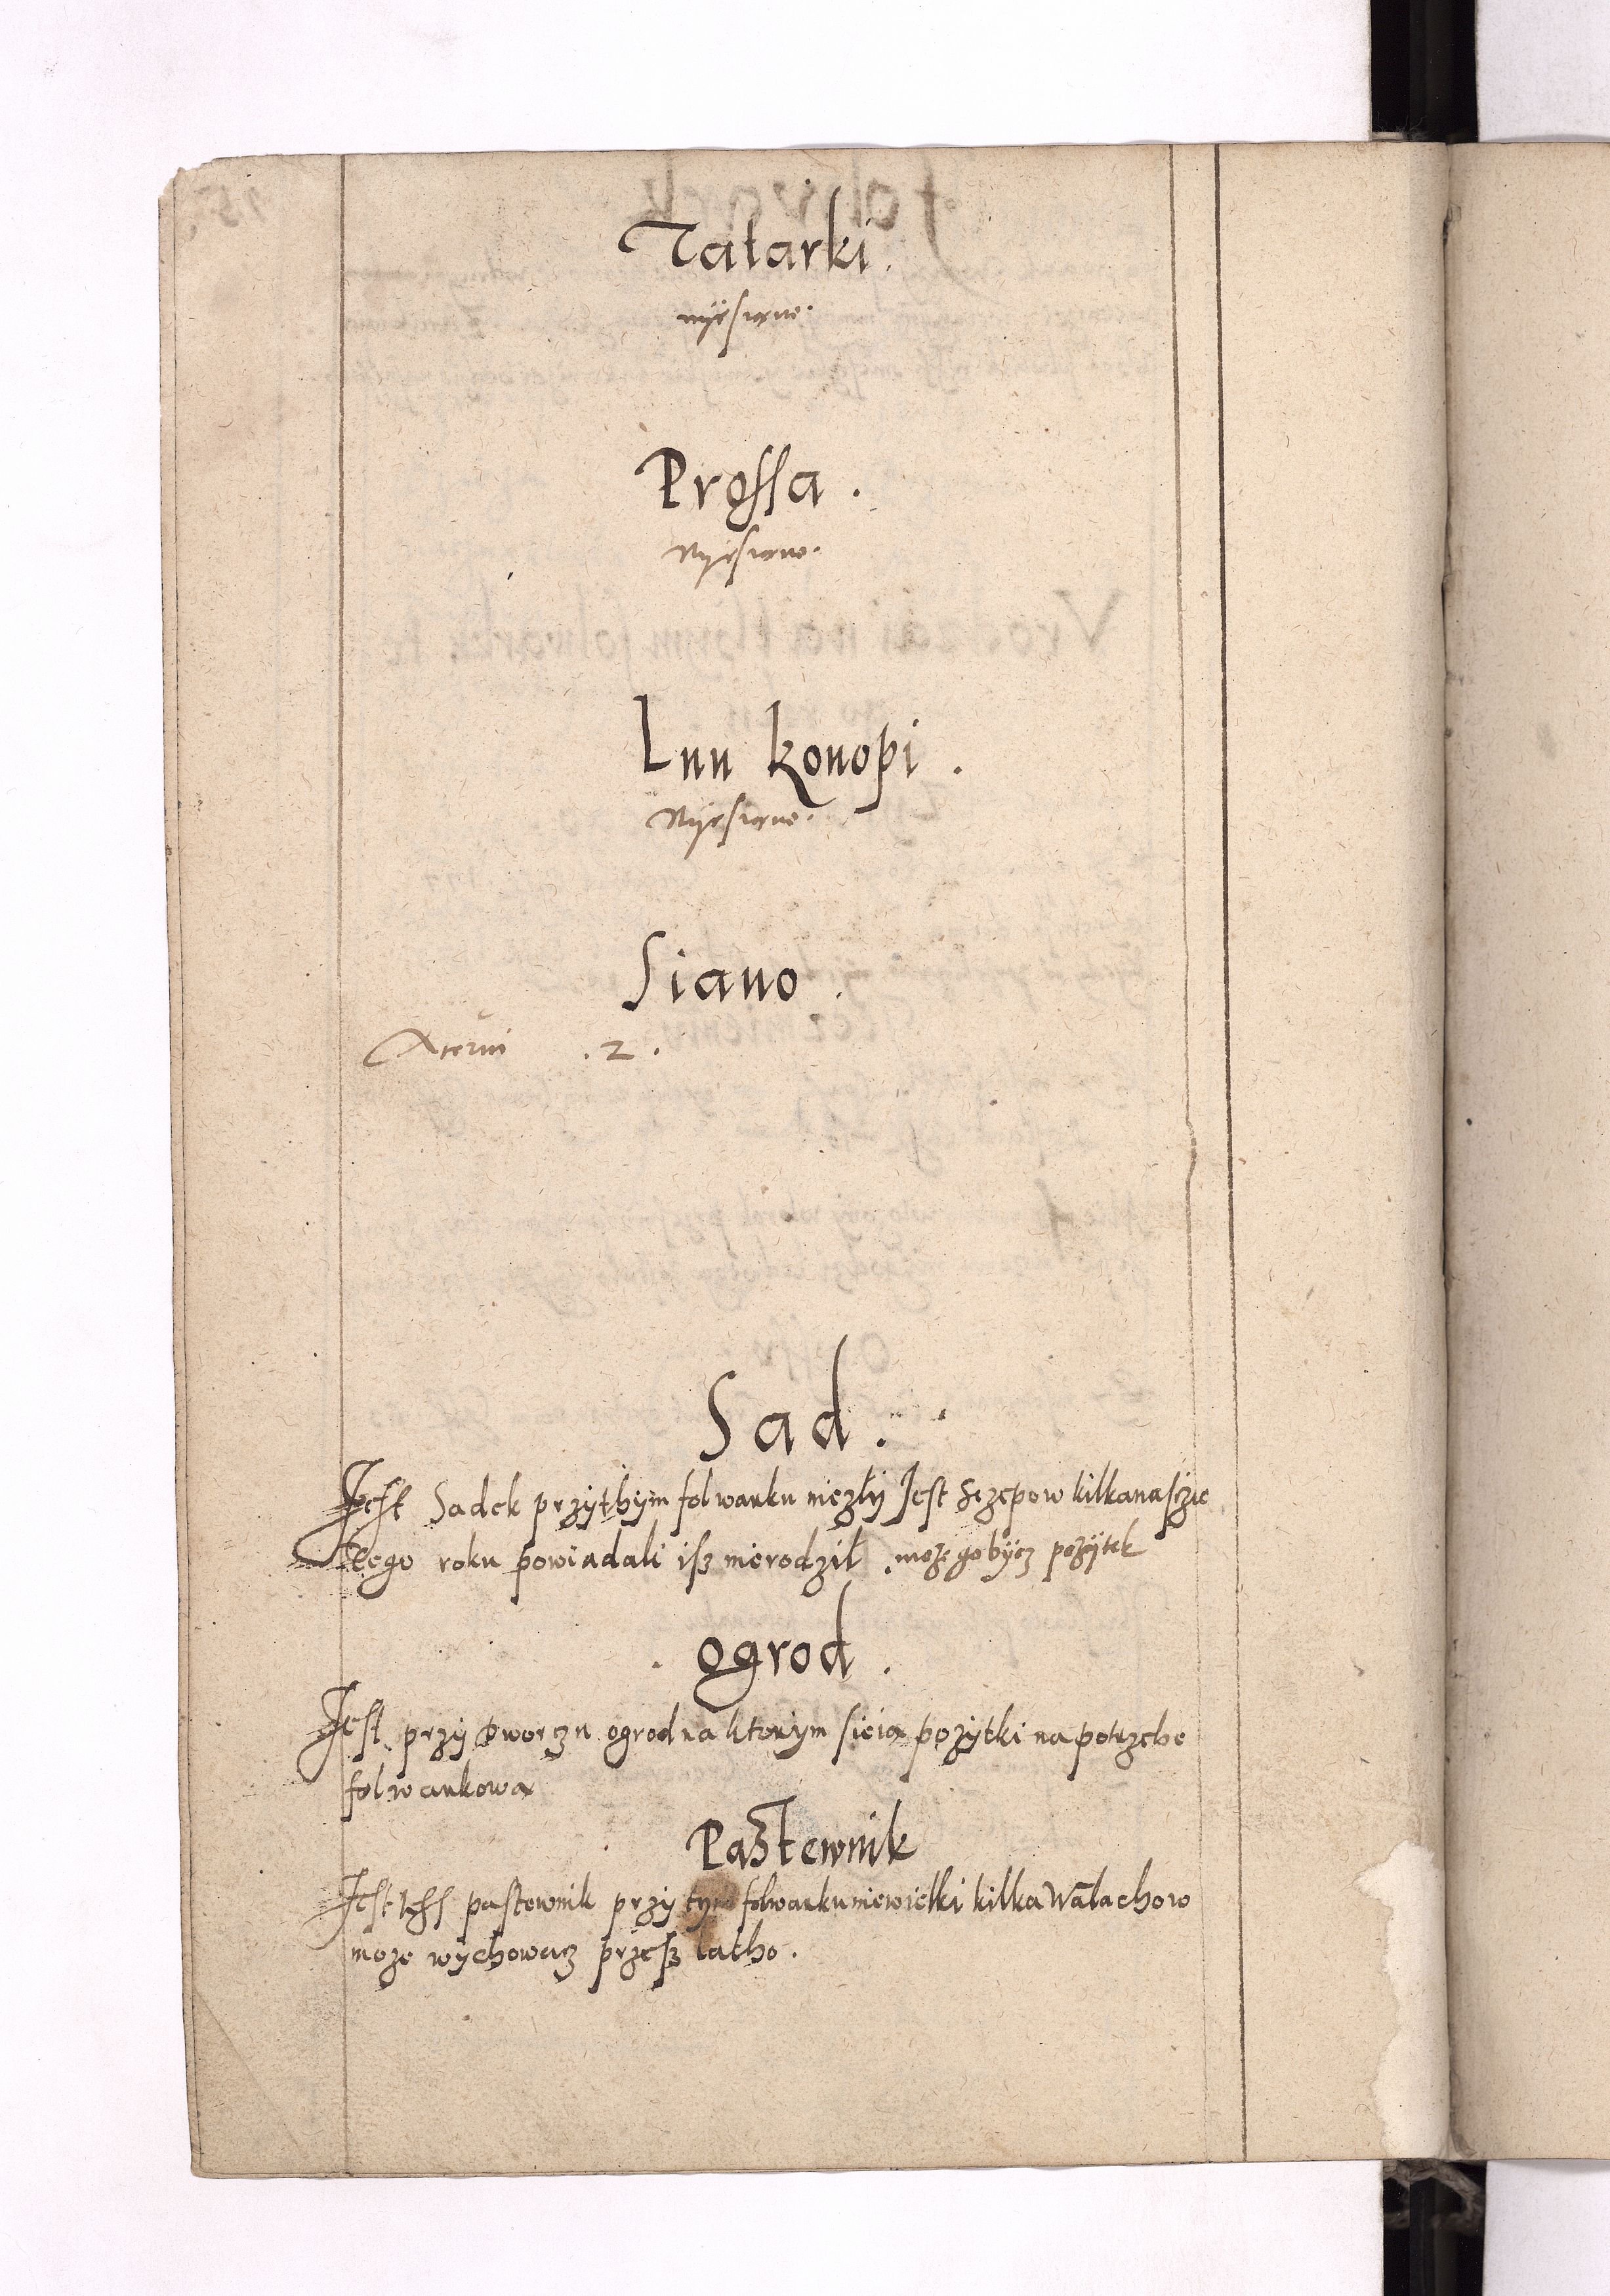 Tatarki.
nyesiąno.
Prossa.
Nyesiąno.
Lnu konopi.
Nyesiąno.
Siano.
Acerui .2.
Sad.
Jest Sadek przythym folwarku niezły Jest Sczepow kilkanasczie
Tego roku powiadali isz nierodził . możegobycz pożytek
ogrod.
Jest przy Dworczu ogrod na ktorym sieią pożytki na potrzebe
folwarkową
Pastewnik
Jest thss pastewnik przy tym folwarku niewielki kilka Wałachow
może wychowacz przesz latho.